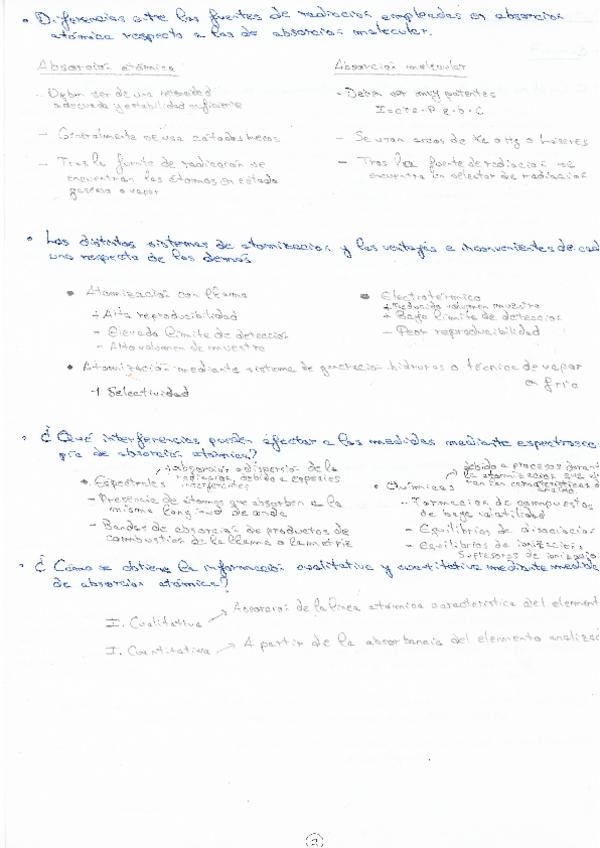 • Diferencias entre las fuentes de radiación empleadas en absorción
atómica respecto a las de absorción molecular.
Absorción atómica
- Deben ser de una intensidad
adecuada y estabilidad suficiente
- Generalmente se usa cátodos huecos
- Tras la fuente de radiación se
encuentran los átomos en estado
gaseoso o vapor
Absorción molecular
- Deben ser muy potentes
I = cte · P · ε · b · C
- Se usan arcos de Xe o Hg o láseres
- Tras la fuente de radiación se
encuentra un selector de radiación
• Los distintos sistemas de atomización y las ventajas e inconvenientes de cad
uno respecto de los demás
• Atomización con llama
+ Alta reproducibilidad
- Elevado límite de detección
- Alto volumen de muestra
• Electrotérmico
+ Reducido volumen muestra
+ Bajo límite de detección
- Peor reproducibilidad
• Atomización mediante sistema de generación hidruros o técnica de vapor
frío
Selectividad
• ¿Qué interferencias pueden afectar a las medidas mediante espectrosco-
pía de absorción atómica?
→ absorción o dispersión de la
radiación, debido a especies
interferentes
• Espectrales
- Presencia de átomos que absorben a la
misma longitud de onda
- Bandas de absorción de productos de
combustión de la llama o la matriz
→ debido a procesos durante
la atomización que
• Químicas
- Formación de compuestos
de baja volatilidad
- Equilibrios de disociación
- Equilibrios de ionización,
supresores de ionización
• ¿Cómo se obtiene la información cualitativa y cuantitativa mediante medidas
de absorción atómica?
I. Cualitativa → Absorción de la línea atómica característica del element
I. Cuantitativa → A partir de la absorbancia del elemento analizado
2